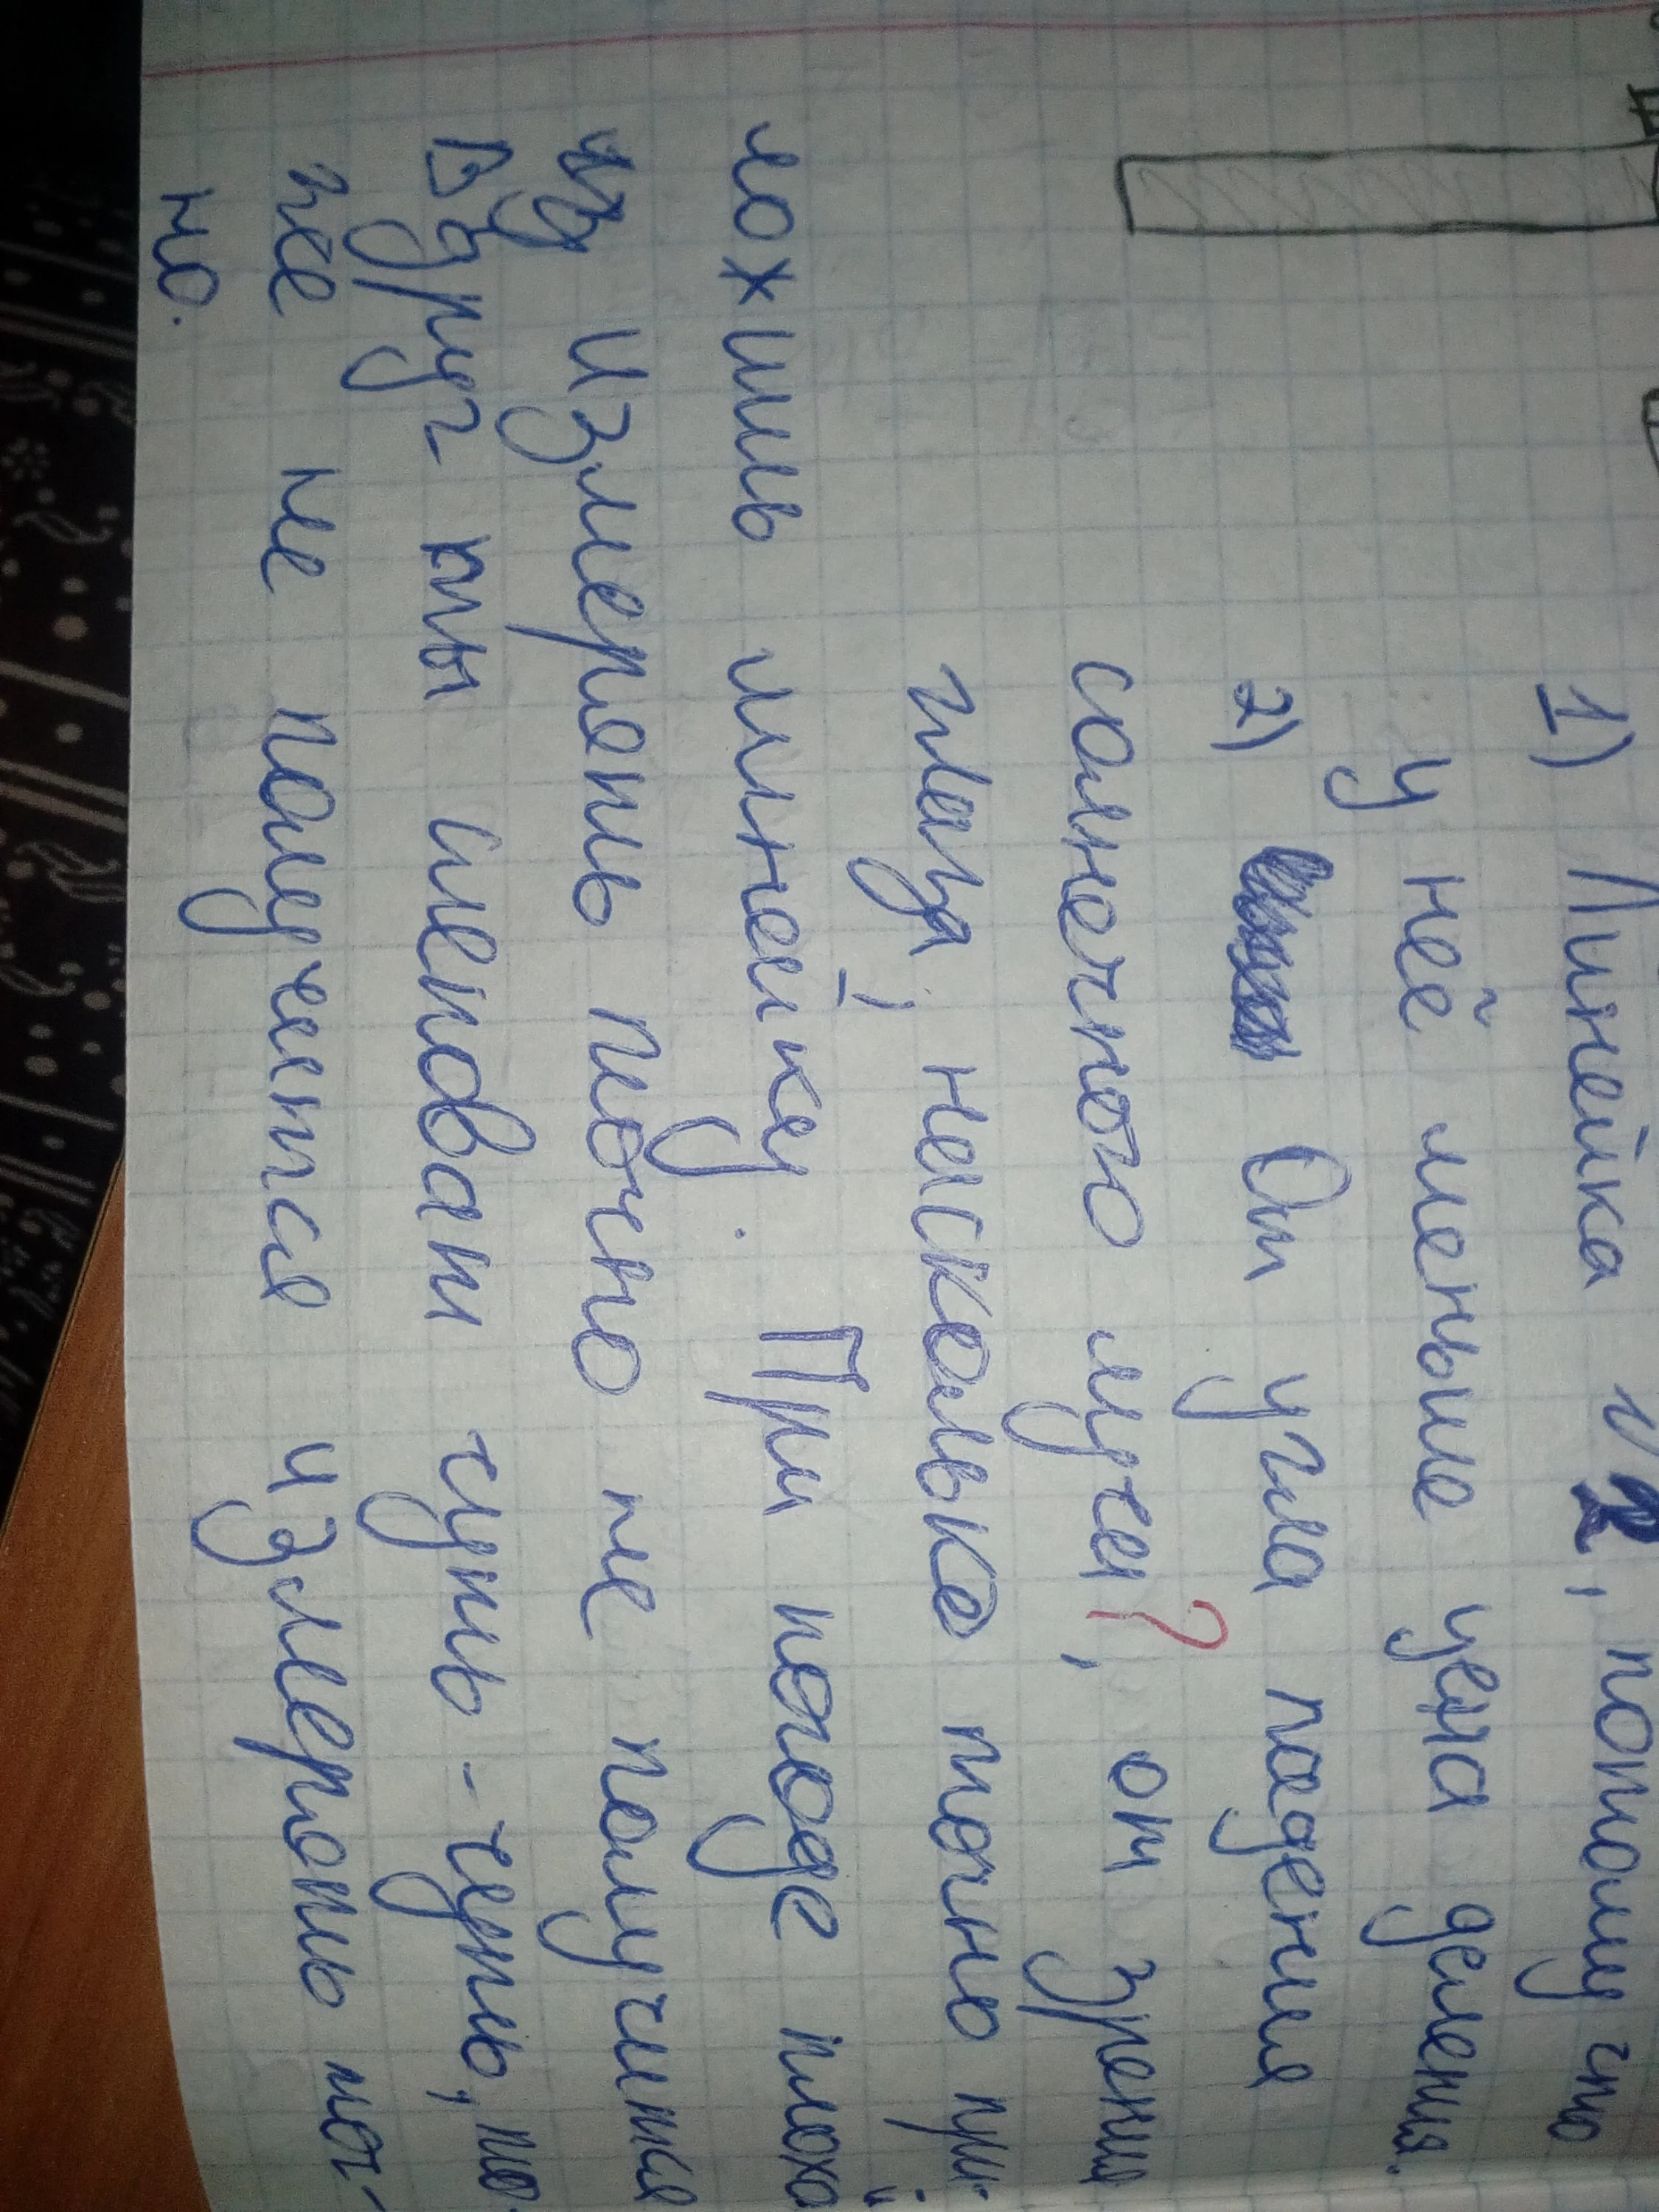 1) Линейка №2, потому что
у неё меньше цена деления.
2) От угла падения
солнечного луча?, от зрения
глаза, насколько точно при-
ложишь линейку. При погоде плохой
измерять точно не получится
Вдруг ты слеповат чуть-чуть, то-
же не получится измерять точ-
но.